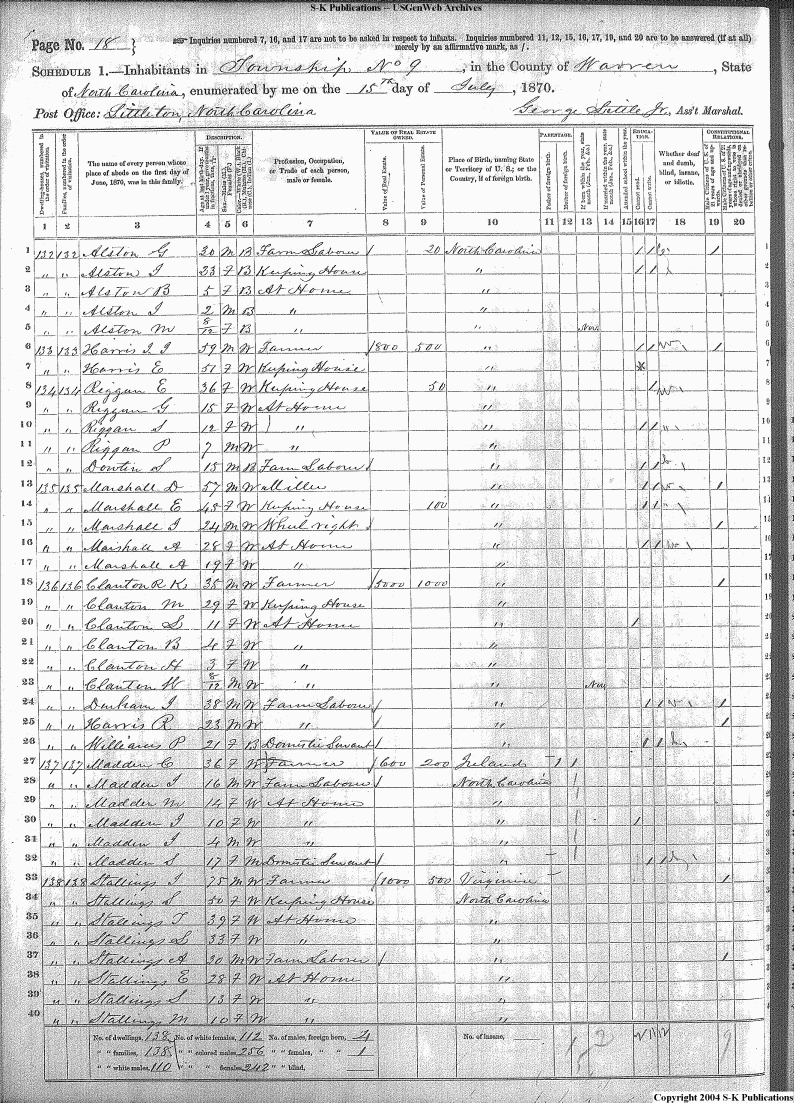 S-K Publications -- USGenWeb Archives
Page No. 18 }
Inquiries numbered 7, 16, and 17 are not to be asked in respect to infants. Inquiries numbered 11, 12, 15, 16, 17, 19, and 20 are to be answered (if at all)
merely by an affirmative mark, as /.
SCHEDULE 1.—Inhabitants in Township No 9, in the County of Warren, State
of North Carolina, enumerated by me on the 15th day of July, 1870.
Post Office: Littleton, North Carolina George Settle Jr., Ass't Marshal.
DESCRIPTION. VALUE OF REAL ESTATE OWNED. PARENTAGE. EDUCATION. CONSTITUTIONAL RELATIONS.
Dwelling-houses, numbered in the order of visitation.
Families, numbered in the order of visitation.
The name of every person whose place of abode on the first day of June, 1870, was in this family.
Profession, Occupation, or Trade of each person, male or female.
Value of Real Estate.
Value of Personal Estate.
Place of Birth, naming State or Territory of U. S.; or the Country, if of foreign birth.
Father of foreign birth.
Mother of foreign birth.
Attended school within the year.
Cannot read.
Cannot write.
Whether deaf and dumb, blind, insane, or idiotic.
1 2 3 4 5 6 7 8 9 10 11 12 13 14 15 16 17 18 19 20
1 132 132 Alston G 30 M B Farm Laborer 20 North Carolina / / /
2 " " Alston I 23 F B Keeping House " / /
3 " " Alston B 5 F B At Home "
4 " " Alston I 2 M B " "
5 " " Alston M 8/12 F B " Nov
6 133 133 Harris I. I 59 M W Farmer 800 500 " / / /
7 " " Harris E 51 F W Keeping House "
8 134 134 Riggan E 36 F W Keeping House 50 " /
9 " " Riggan G 15 F W At Home "
10 " " Riggan S 12 F W " " / /
11 " " Riggan P 7 M W " "
12 " " Dowtin S 15 M B Farm Laborer " / /
13 135 135 Marshall D 57 M W Miller " / / /
14 " " Marshall E 48 F W Keeping House 100 " / /
15 " " Marshall I 24 M W Wheel right " /
16 " " Marshall A 28 F W At Home " / /
17 " " Marshall A 19 F W " "
18 136 136 Clanton R K. 35 M W Farmer 5000 1000 " /
19 " " Clanton M 29 F W Keeping House "
20 " " Clanton S 11 F W At Home " /
21 " " Clanton B 4 F W " "
22 " " Clanton H 3 F W " "
23 " " Clanton W 8/12 M W " " Nov
24 " " Durham I 38 M W Farm Laborer " / / /
25 " " Harris R 23 M W " " /
26 " " Williams P 21 F B Domestic Servant " / /
27 137 137 Madden C 36 F W Farmer 600 200 Ireland / /
28 " " Madden I 16 M W Farm Laborer North Carolina /
29 " " Madden M 14 F W At Home " /
30 " " Madden I 10 F W " / /
31 " " Madden I 4 M W " /
32 " " Madden S 17 F M Domestic Servant " / /
33 138 138 Stallings I 75 M W Farmer 1000 500 Virginia /
34 " " Stallings S 50 F W Keeping House North Carolina
35 " " Stallings T 39 F W At Home "
36 " " Stallings S 33 F W " "
37 " " Stallings A 30 M W Farm Laborer " /
38 " " Stallings E 28 F W At Home "
39 " " Stallings S 13 F W " "
40 " " Stallings M 10 F W " "
No. of dwellings, 138 No. of white females, 112 No. of males, foreign born, 4 No. of insane,
" " families, 138 " " colored males, 256 " " females, " " 1
" " white males, 110 " " " females, 242 " " blind,
Copyright 2004 S-K Publications